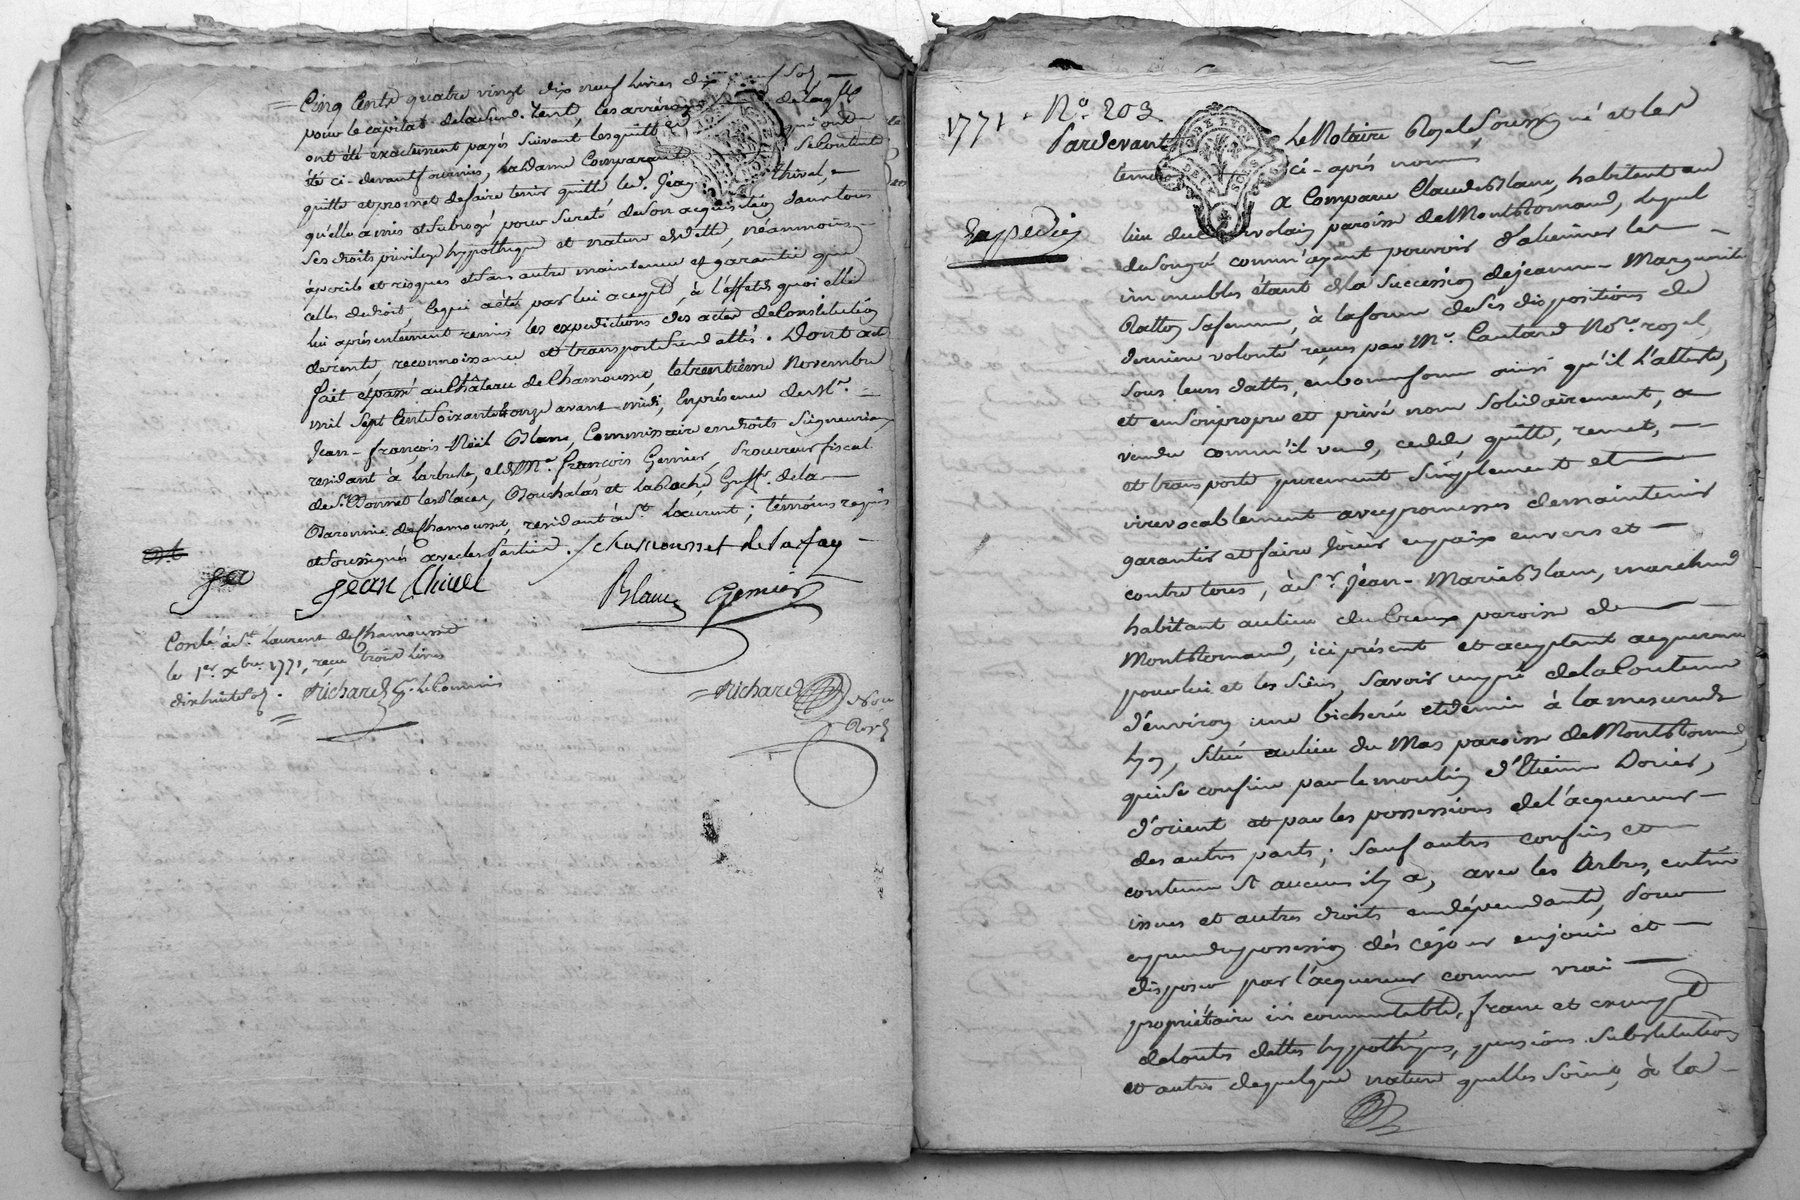 Cinq Cents quatre vingt dix neuf livres dix neuf Sol,
pour le capital de lad. rente, les arrérages
ont été exactement payés Suivant les quittces qui ont
été ci-devant fournies, lad Dame Comparante Se Contente
quitte et promet de faire tenir quitte led. Jean Thivel,
qu'elle a mis et Subrogé pour Sureté de Son acquisition dans tous
Ses droits privilege hypotheque et nature de dette, néanmoins
à perils et risques et Sans autre maintenue et garantie que
celle de droit, ce qui a été par lui accepté, à l'effet de quoi elle
lui a présentement remis les expeditions des actes de Constitution
de rente, reconnoissance et transport Susd attés. Dont acte
fait et passé au Château de Chamousset, le trentieme Novembre
mil Sept Cent Soixante onze avant midi, En présence de Mr.
Jean-françois-Noël Blanc, Commissaire en droits Seigneuriaux
residant à Larbresle, et de Me. françois Gernier, Procureur fiscal
de St. Bonnet les Places, Bouchalas et la Roche, Greff. de la
Baronnie de Chamousset, residant à St. Laurent; temoins requis
et Soussignés avec les Parties. Chamousset de la fay
Jean Thivel Blanc Gernier
Conlé à St. Laurent de Chamousset
le 1er. xbre. 1771, reçu trois livres
dix huit Sol. Richard G. le Commis
Richard
Nore
Royal
1771. No. 203.
Pardevant Le Notaire Royal Soussigné et les
temoins ci-après nommés
a Comparu Claude Blanc, habitant au
lieu du paroisse de Montromand, lequel
de Son gré comm'ayant pouvoir d'aliener les
immeubles étant de la Succession de jeanne-Marguerite
Ratton Sa femme, à la forme de Ses dispositions de
derniere volonté reçues par Me. Nore. royal,
Sous leurs dattes, en bonne forme ainsi qu'il l'atteste,
et en Son propre et privé nom Solidairement, a
vendu comm'il vend, cedde quitte, remet,
et transporte purement Simplement et
irrevocablement avec promesses de maintenir
garantir et faire Jouir en paix envers et
contre tous, à Sr. Jean-Marie Blanc, marchand
habitant au lieu du Creux paroisse de
Montromand, ici présent et acceptant acquereur
pour lui et les Siens, Savoir un pré de la Contenue
d'environ une bicherée et demie à la mesure de
Lyon, Situé au lieu du Mas paroisse de Montromand,
qui Se confine par le moulin d'Etienne Dorier,
d'orient et par les possessions de l'acquereur
des autres parts; Sauf autres confins et
contenue Si aucuns il y a, avec les Arbres, entrées
issues et autres droits en dépendants, pour
en prendre possession dès ce jour en jouir et
disposer par l'acquereur comme vrai
propriétaire incommutable, franc et exempt
de toutes dettes hypotheques, pensions Substitutions
et autres de quelque nature quelles Soient, à la